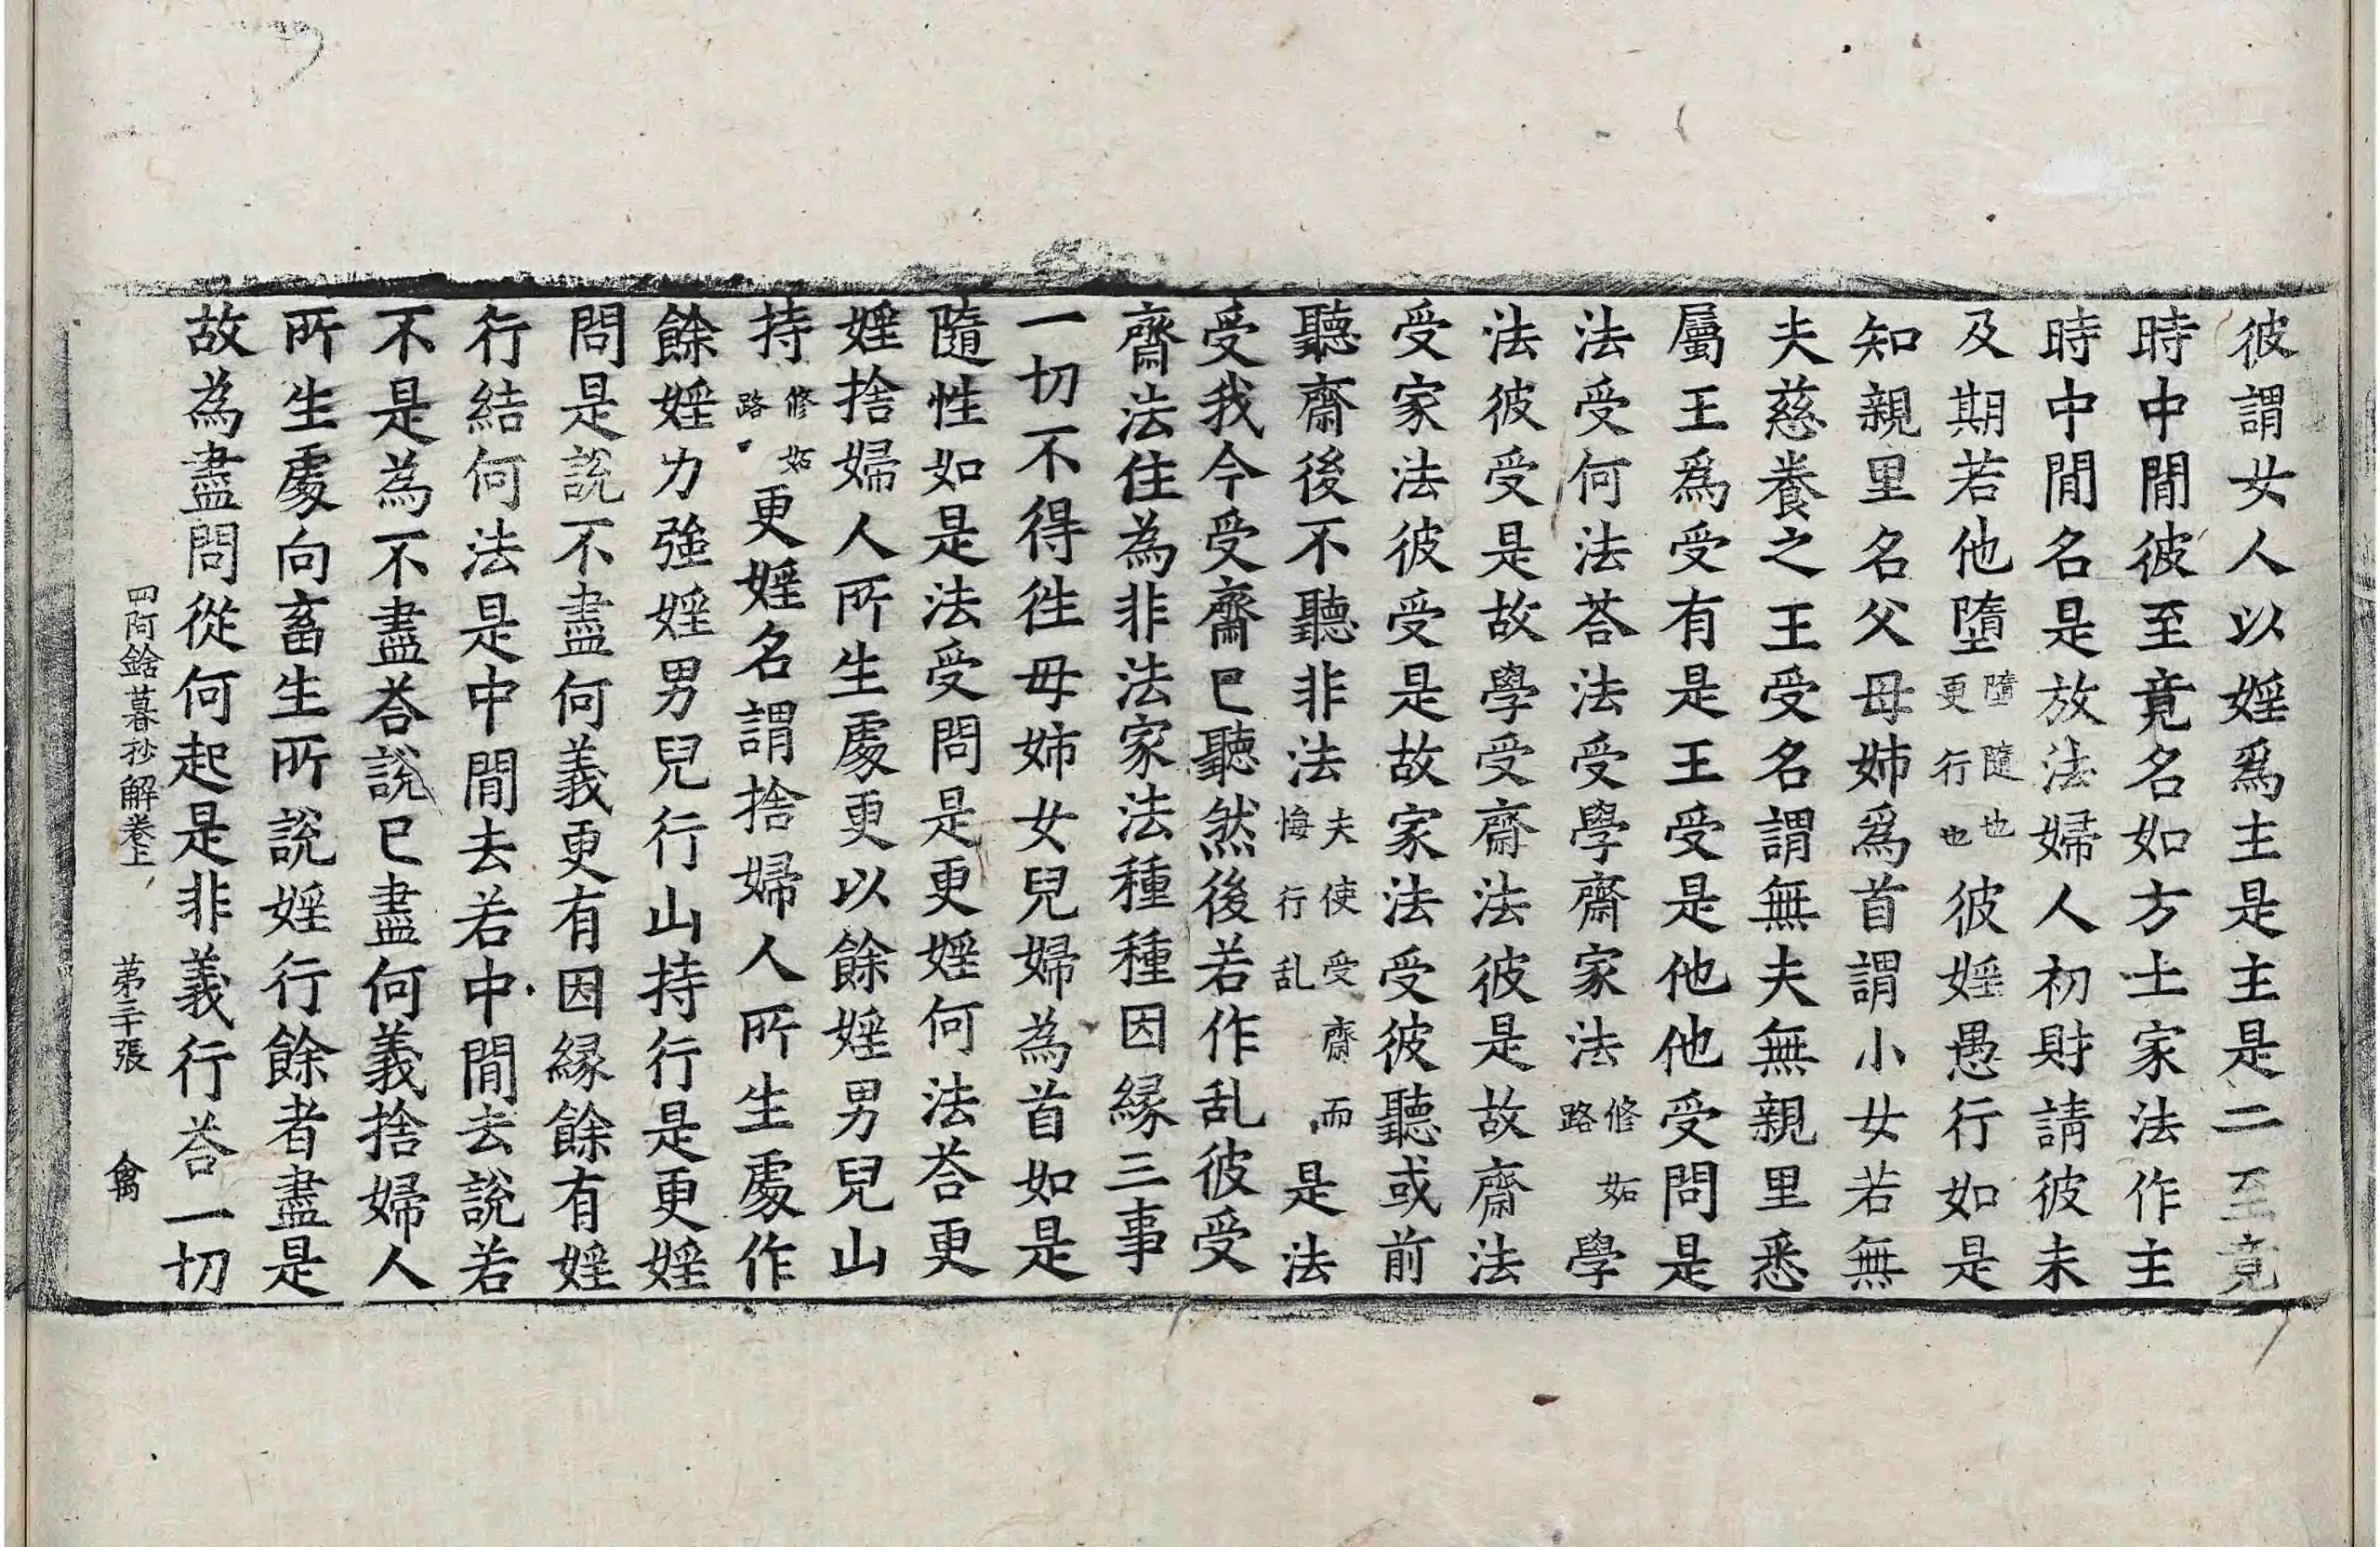 彼謂女人以婬爲主是主是二至竟
時中閒彼至竟名如方士家法作主
時中閒名是放法婦人初財請彼未
及期若他墮墮隨也更行也彼婬愚行如是
知親里名父母姉爲首謂小女若無
夫慈養之王受名謂無夫無親里悉
屬王爲受有是王受是他他受問是
法受何法荅法受學齋家法修妬路學
法彼受是故學受齋法彼是故齋法
受家法彼受是故家法受彼聽或前
聽齋後不聽非法夫使受齋而悔行乱是法
受我今受齋已聽然後若作乱彼受
齋法住為非法家法種種因縁三事
一切不得徃母姉女兒婦為首如是
隨性如是法受問是更婬何法荅更
婬捨婦人所生處更以餘婬男兒山
持修妬路更婬名謂捨婦人所生處作
餘婬力強婬男兒行山持行是更婬
問是說不盡何義更有因縁餘有婬
行結何法是中閒去若中閒去說若
不是為不盡荅說已盡何義捨婦人
所生處向畜生所說婬行餘者盡是
故為盡問從何起是非義行荅一切
四阿鋡暮抄解卷上 第三十張 禽